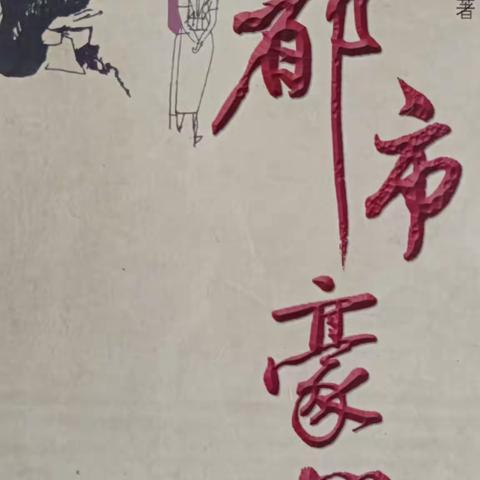 著
都市豪